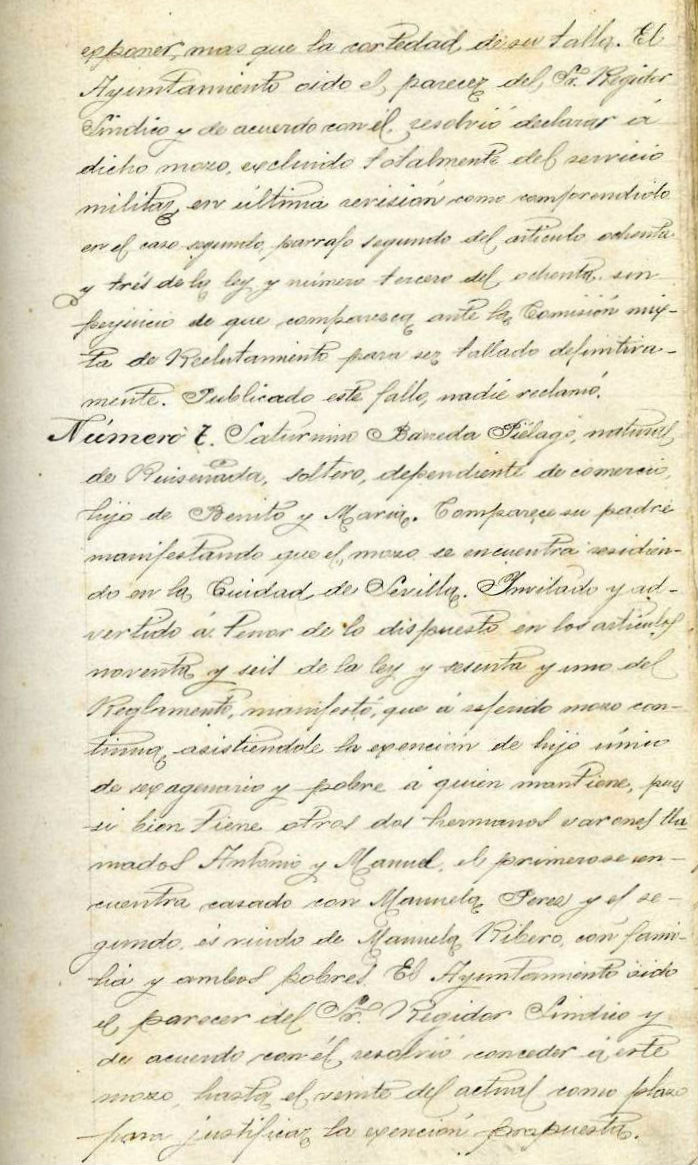 exponer, mas que la cortedad de su talla. El
Ayuntamiento oido el parecer del Sr. Regidor
Sindico y de acuerdo con él, resolvió declarar á
dicho mozo, excluido totalmente del servicio
militar, en última revisión como comprendido
en el caso segundo, parrafo segundo del articulo ochenta
y trés de la ley y número tercero del ochenta, sin
perjuicio de que comparezca ante la Comisión mix-
ta de Reclutamiento para ser tallado definitiva-
mente. Publicado este fallo, nadie reclamó.
Número 7. Saturnino Bareda Piélago, natural
de Ruiseñada, soltero, dependiente de comercio,
hijo de Benito y Maria. Comparece su padre
manifestando que el mozo se encuentra residien-
do en la Ciudad de Sevilla. Invitado y ad-
vertido á tenor de lo dispuesto en los articulos
noventa y seis de la ley y sesenta y uno del
Reglamento, manifestó, que á referido mozo con-
tinua asistiendole la exención de hijo único
de sexagenario y pobre á quien mantiene, pues
si bien tiene otros dos hermanos varones lla
mados Antonio y Manuel, el primero se en-
cuentra casado con Manuela Perez y el se-
gundo, es viudo de Manuela Ribero, con fami-
lia y ambos pobres. El Ayuntamiento oido
el parecer del Sr. Regidor Sindico y
de acuerdo con él resolvió conceder á este
mozo, hasta el veinte del actual como plazo
para justificar la exención propuesta.